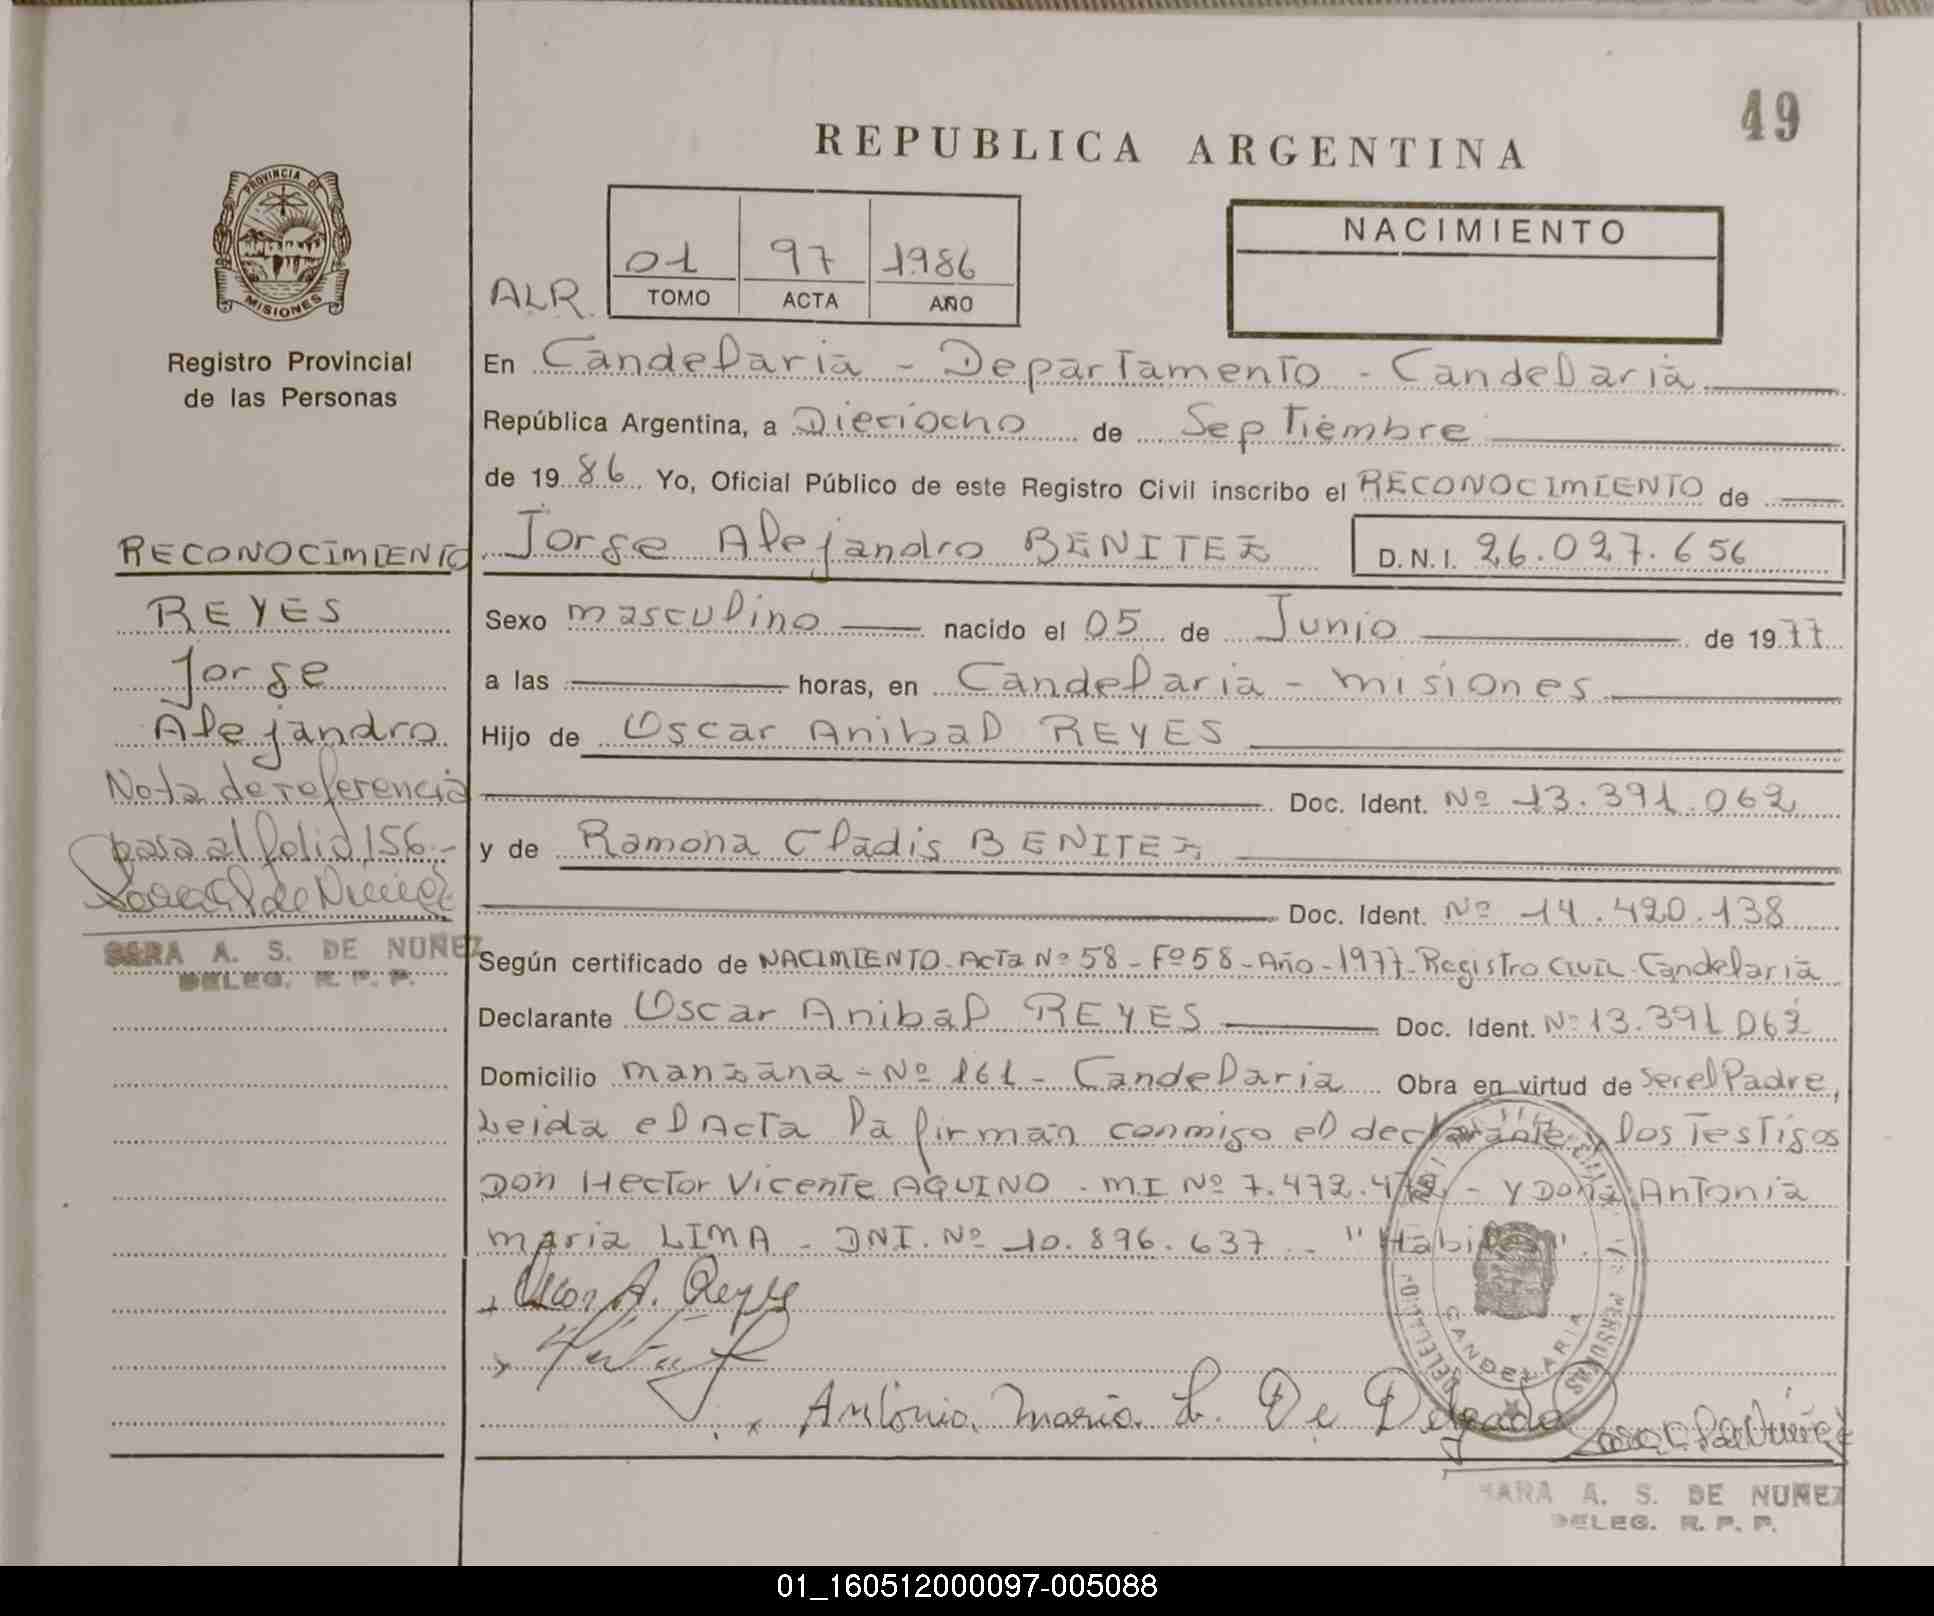 49
REPUBLICA ARGENTINA
PROVINCIA DE
MISIONES
Registro Provincial
de las Personas
ALR.
01 97 1986
TOMO ACTA AÑO
NACIMIENTO
En Candelaria - Departamento - Candelaria
República Argentina, a Dieciocho de Septiembre
de 19 86 Yo, Oficial Público de este Registro Civil inscribo el RECONOCIMIENTO de
Jorge Alejandro BENITEZ D.N.I. 26.027.656
Sexo masculino nacido el 05 de Junio de 1977
a las horas, en Candelaria - misiones
Hijo de Oscar Anibal REYES
Doc. Ident. Nº 13.391.062
y de Ramona Gladis BENITEZ
Doc. Ident. Nº 14.420.138
Según certificado de NACIMIENTO - Acta Nº 58 - Fº 58 - Año - 1977 - Registro Civil - Candelaria
Declarante Oscar Anibal REYES Doc. Ident. Nº 13.391.062
Domicilio manzana - Nº 161 - Candelaria Obra en virtud de ser el Padre,
Leida el Acta la firman conmigo el declarante y los Testigos
Don Hector Vicente AQUINO - MI Nº 7.472. - y Doña Antonia
maria LIMA - DNI. Nº 10.896.637 - "Habiles".
Oscar A. Reyes
Antonia Maria L. De Delgado
CANDELARIA
SARA A. S. DE NUÑEZ
DELEG. R. P. P.
RECONOCIMIENTO
REYES
Jorge
Alejandro
Nota de referencia
pasa al folio 156.-
SARA A. S. DE NUÑEZ
DELEG. R. P. P.
01_160512000097-005088